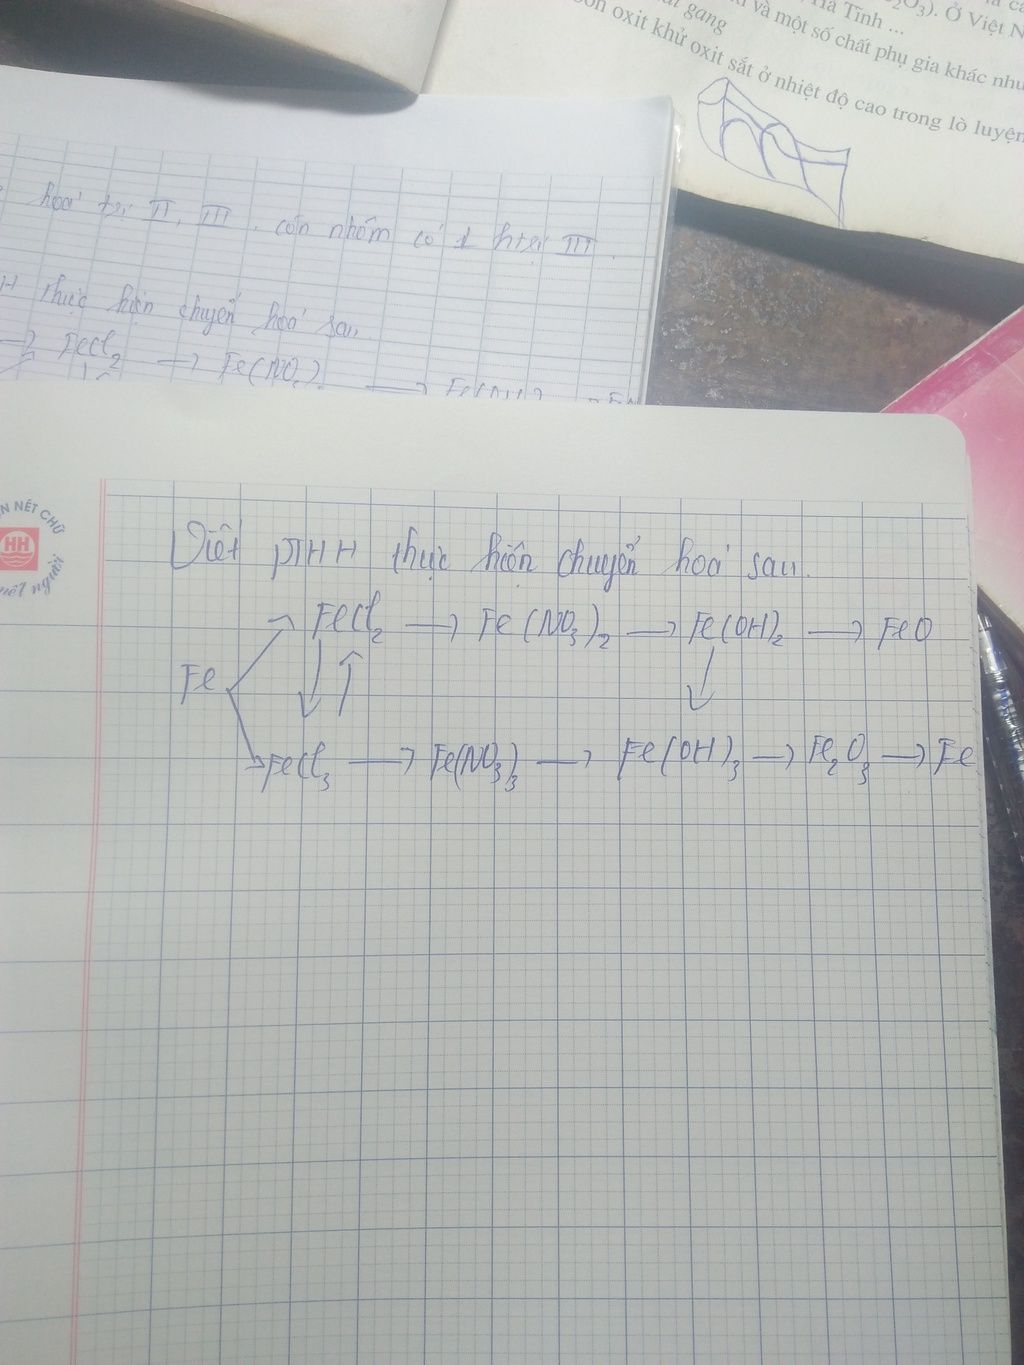 Hà Tĩnh ... ₂O₃). Ở Việt N
và một số chất phụ gia khác như
gang
oxit khử oxit sắt ở nhiệt độ cao trong lò luyện
hoá trị II, III. còn nhôm có 1 htrị III.
thực hiện chuyển hoá sau.
→ FeCl₂ → Fe(NO₃)₂ →
NÉT CHỮ
HH
nết người
Viết PTHH thực hiện chuyển hoá sau.
FeCl₂ → Fe(NO₃)₂ → Fe(OH)₂ → FeO
Fe
FeCl₃ → Fe(NO₃)₃ → Fe(OH)₃ → Fe₂O₃ → Fe